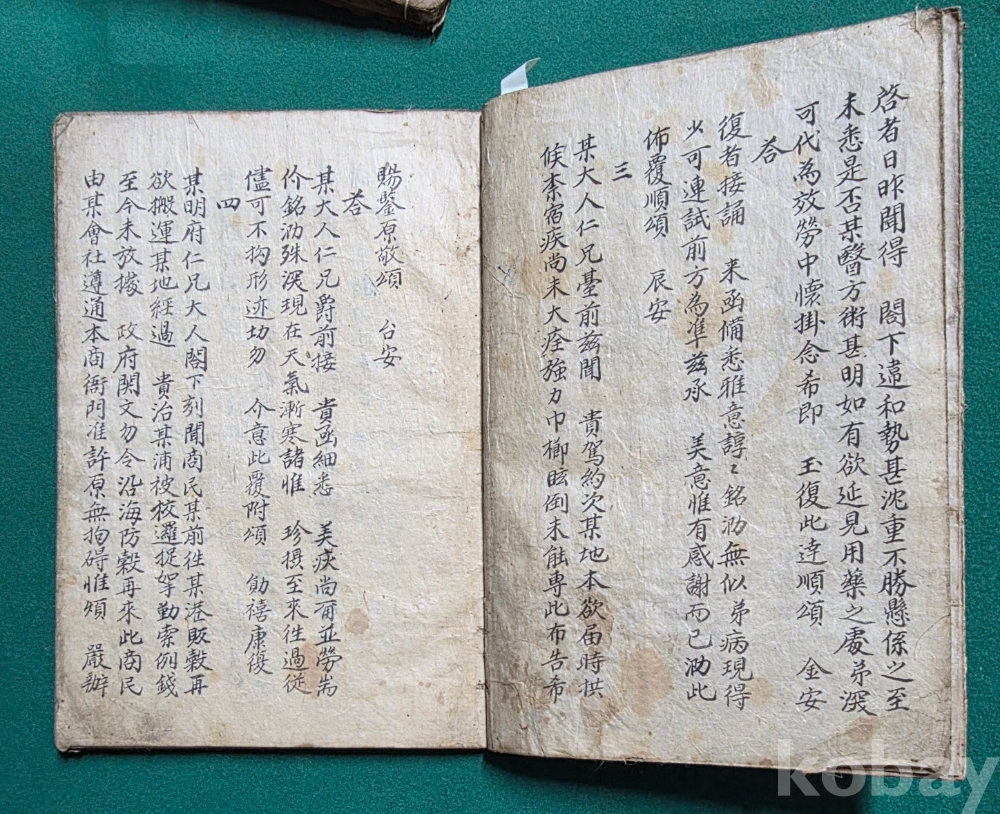 啓者日昨聞得 閤下違和勢甚沈重不勝懸係之至
未悉是否某醫方術甚明如有欲延見用藥之處弟深
可代為效勞中懷掛念希即 玉復此達順頌 金安
答
復者接誦 来函備悉雅意諄〻銘泐無似弟病現得
少可連試前方為準茲承 美意惟有感謝而已泐此
佈覆順頌 辰安
三
某大人仁兄臺前茲聞 貴駕約次某地本欲届時拱
候柰宿疾尚未大痊強力巾櫛眩倒未能專此布告希
賜鑒原敬頌 台安
答
某大人仁兄爵前接 貴函細悉 美疾尚甭並勞耑
价銘泐殊深現在天氣漸寒諸惟 珍摂至來徃過従
儘可不拘形迹切勿 介意此覆附頌 勛禧康復
四
某明府仁兄大人閣下刻聞商民某前徃某港販穀再
欲搬運某地經過 貴治某浦被校邏捉拏勤索例錢
至今未放據 政府関文勿令沿海防穀再來此商民
由某會社遵通本商衙門准許原無拘碍惟煩 嚴辦
kobay